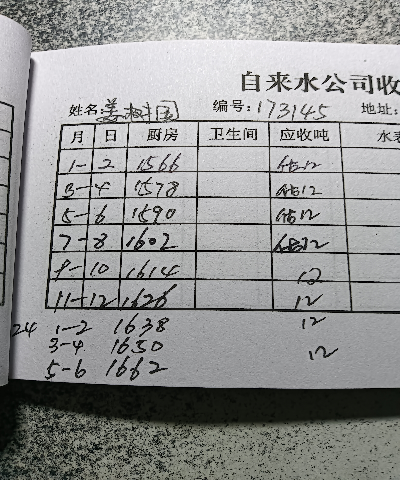 自来水公司收
姓名:姜树国 编号:173145 地址:
月 日 厨房 卫生间 应收吨 水表
1-2 1566 估12
3-4 1578 估12
5-6 1590 估12
7-8 1602 估12
9-10 1614 12
11-12 1626 12
24 1-2 1638 12
3-4 1650 12
5-6 1662